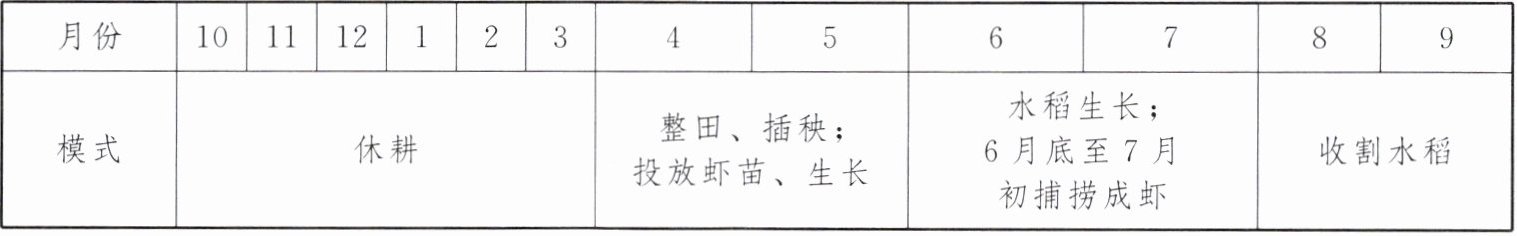 月份 10 11 12 1 2 3 4 5 6 7 8 9
模式 休耕 整田、插秧；
投放虾苗、生长 水稻生长；
6月底至7月
初捕捞成虾 收割水稻